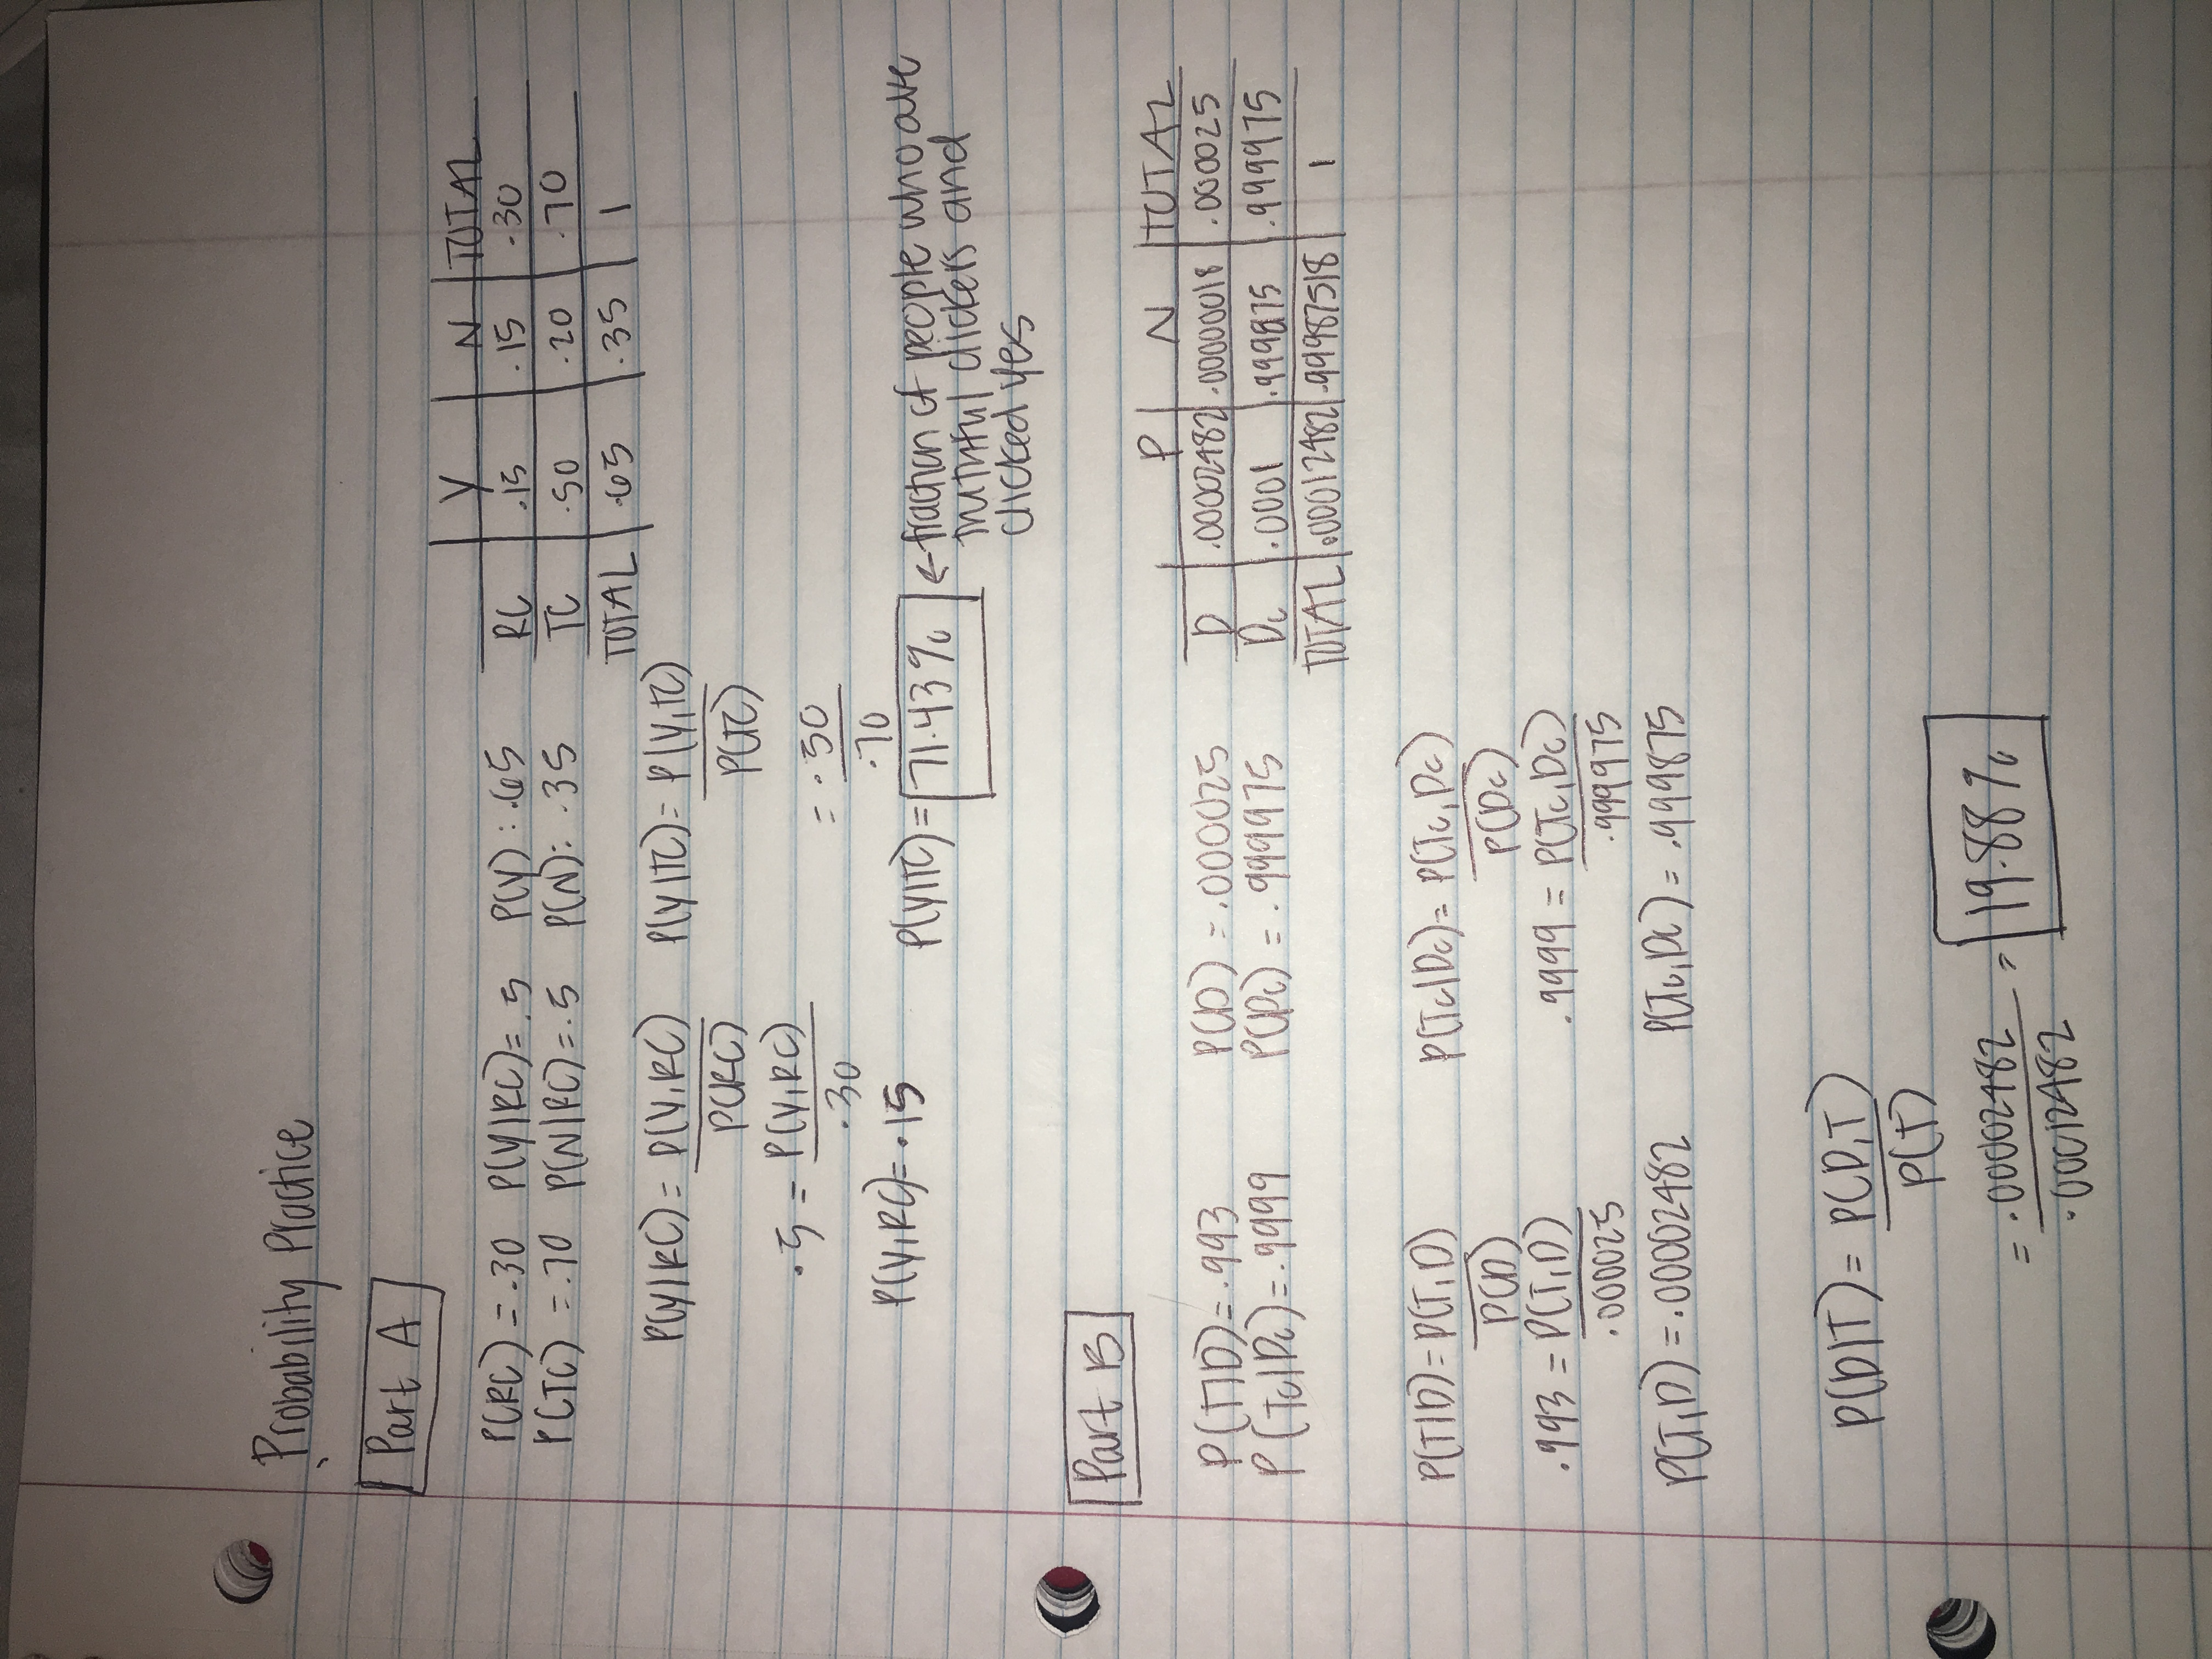 Probability Practice
Part A
P(RC) = .30 P(Y|RC) = .5 P(Y) : .65
P(TC) = .70 P(N|RC) = .5 P(N) : .35
Y N TOTAL
RC .15 .15 .30
TC .50 .20 .70
TOTAL .65 .35 1
P(Y|RC) = P(Y,RC)
P(RC)
.5 = P(Y,RC)
.30
P(Y,RC) = .15
P(Y|TC) = P(Y,TC)
P(TC)
= .50
.70
P(Y|TC) = 71.43% ← fraction of people who are
truthful clickers and
clicked yes
Part B
P(T|D) = .993 P(D) = .000025
P(Tc|Dc) = .9999 P(Dc) = .999975
P N TOTAL
D .00002482 .00000018 .000025
Dc .0001 .999875 .999975
TOTAL .00012482 .99987518 1
P(T|D) = P(T,D)
P(D)
.993 = P(T,D)
.000025
P(T,D) = .00002482
P(Tc|Dc) = P(Tc,Dc)
P(Dc)
.9999 = P(Tc,Dc)
.999975
P(Tc,Dc) = .999875
P(D|T) = P(D,T)
P(T)
= .00002482 = 19.88%
.00012482